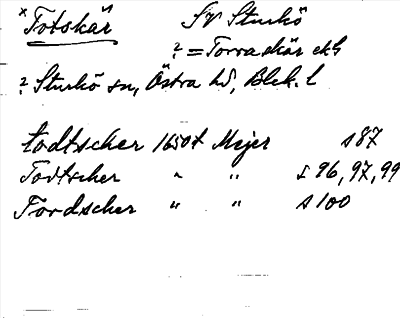 × Totskär SV Sturkö
? = Torraskär ekbl
? Sturkö sn, Östra hd, Blek. l
todtscher 1650t Mejer s 87
Todtscher " " s 96, 97, 99
Tordscher " " s 100